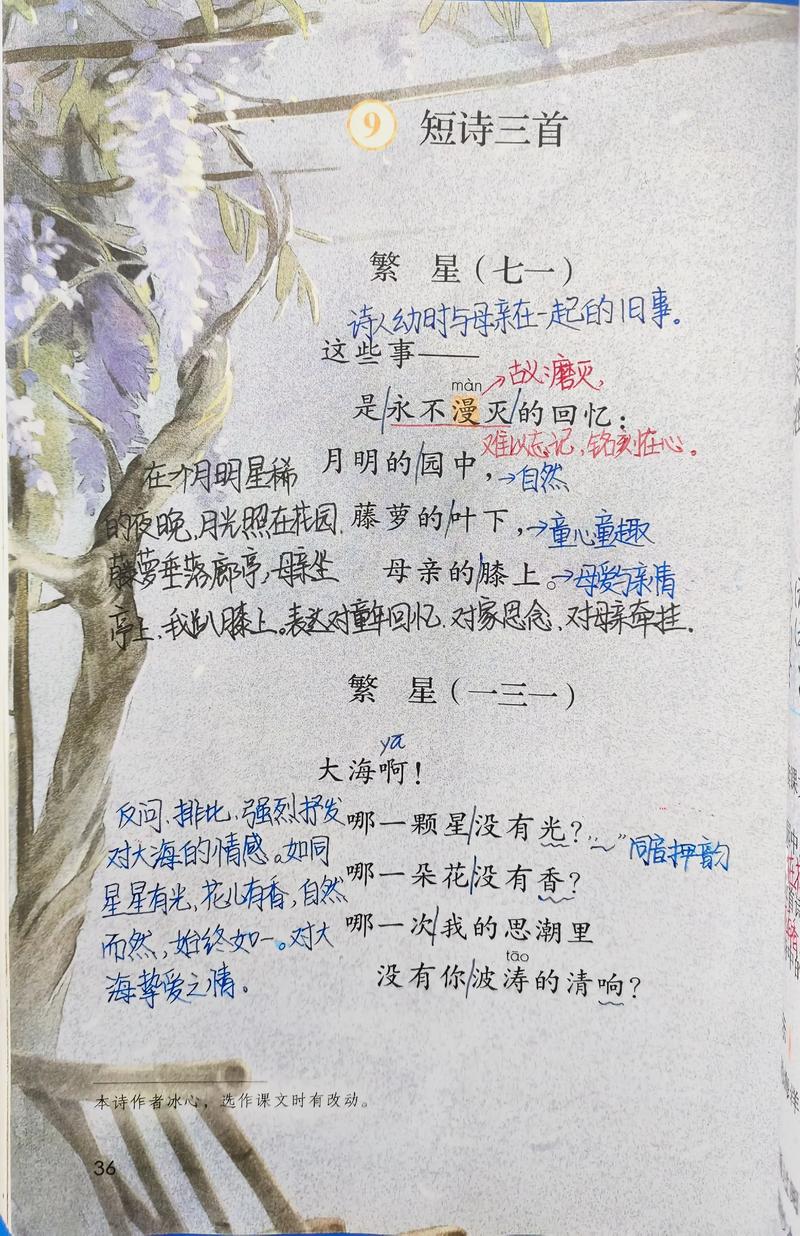 9 短诗三首
繁 星（七一）
诗人幼时与母亲在一起的旧事。
这些事——
màn
→古义:磨灭,
是/永不漫灭/的回忆：
难以忘记,铭刻在心。
月明的/园中，→自然
藤萝的/叶下，→童心童趣
母亲的/膝上。→母爱与亲情
在个月明星稀
的夜晚,月光照在花园.
藤萝垂落廊亭,母亲坐
亭上、我趴膝上。表达对童年回忆、对家思念、对母亲牵挂.
繁 星（一三一）
yā
大海啊！
哪一颗星/没有光？“～”同韵押韵
哪一朵花/没有香？
哪一次/我的思潮里
tāo
没有你/波涛的清响？
反问、排比、强烈抒发
对大海的情感。如同
星星有光,花儿有香,自然
而然,始终如一。对大
海挚爱之情.
本诗作者冰心，选作课文时有改动。
36